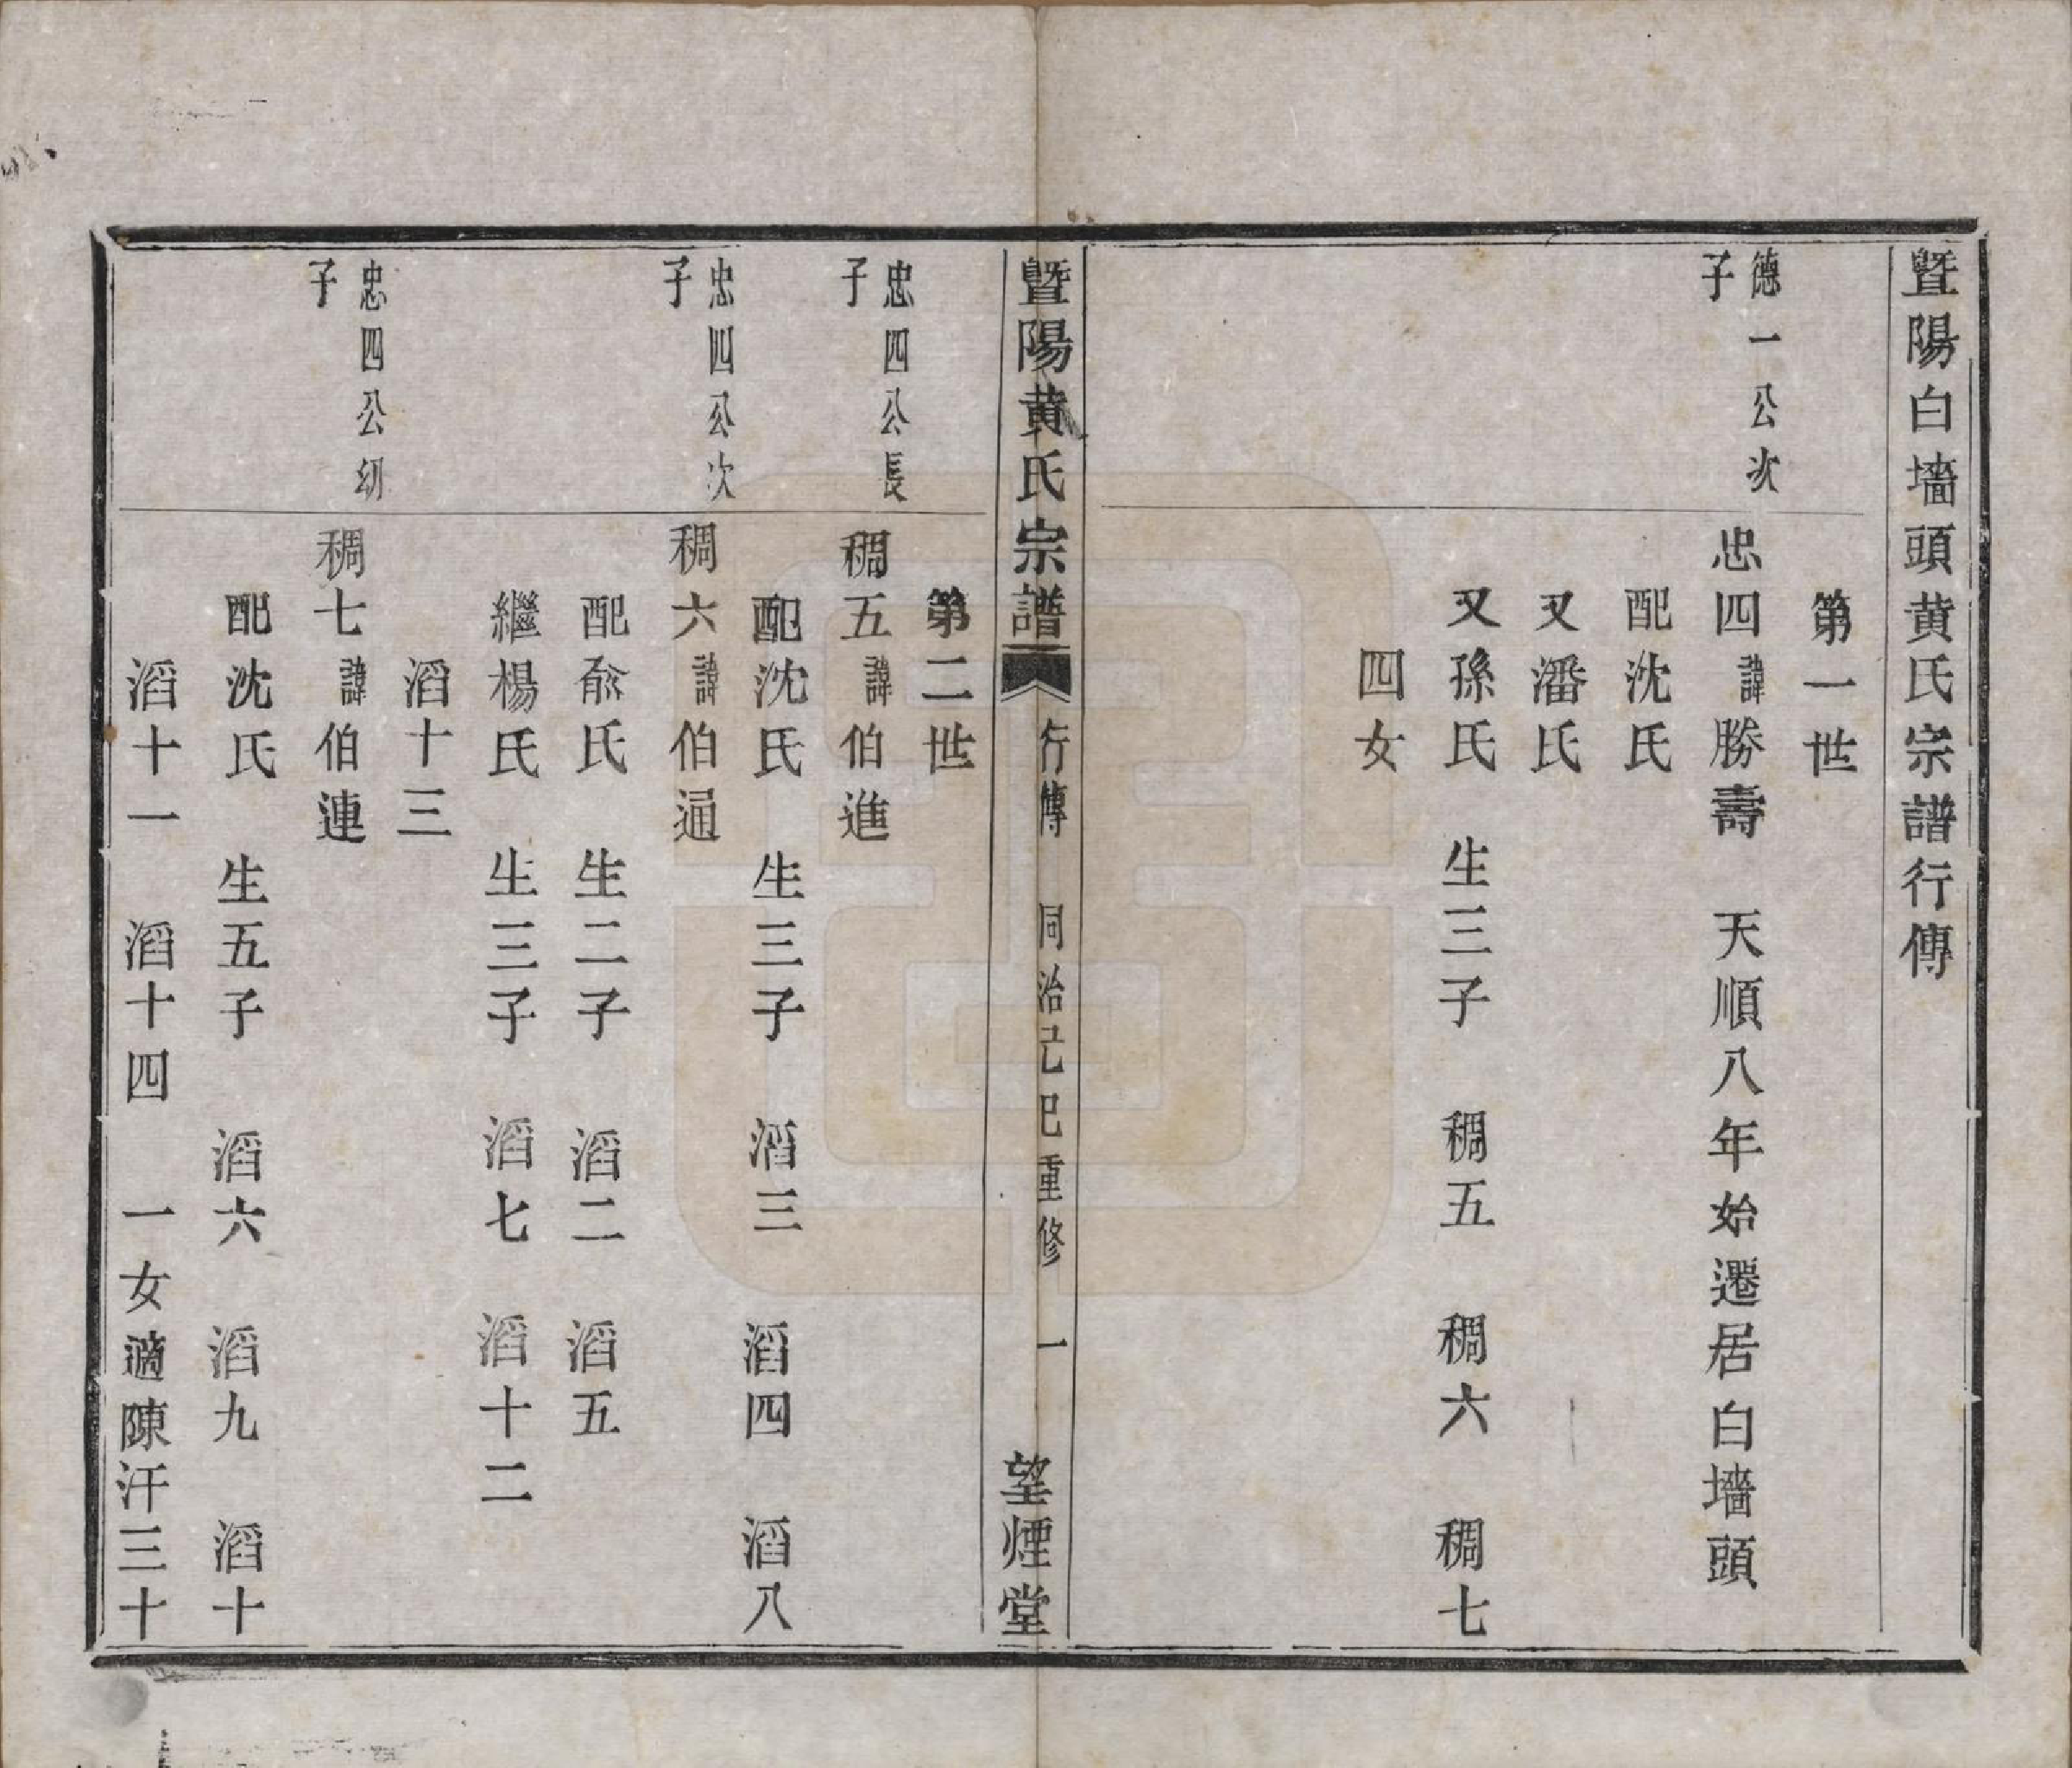 暨陽白墻頭黃氏宗譜行傳
第一世
德一公次子
忠四諱勝壽 天順八年始遷居白墻頭
配沈氏
又潘氏
又孫氏 生三子 稠五 稠六 稠七
四女
暨陽黃氏宗譜 行傳 同治己巳重修 一 望煙堂
第二世
忠四公長子
稠五諱伯進
配沈氏 生三子 滔三 滔四 滔八
忠四公次子
稠六諱伯通
配俞氏 生二子 滔二 滔五
繼楊氏 生三子 滔七 滔十二
滔十三
忠四公幼子
稠七諱伯連
配沈氏 生五子 滔六 滔九 滔十
滔十一 滔十四 一女適陳汗三十